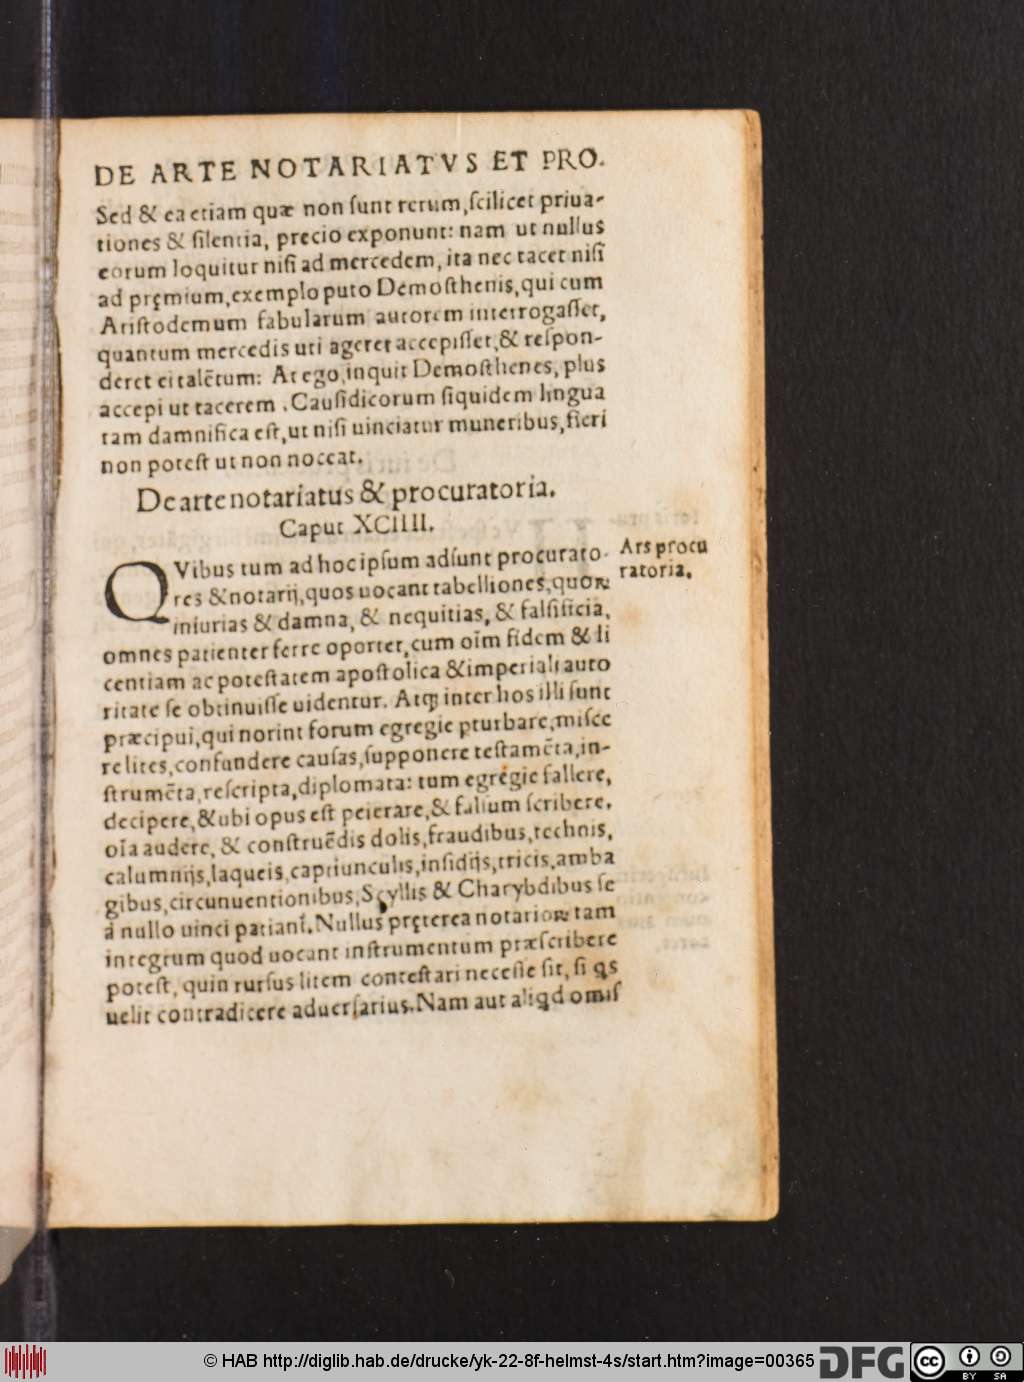 DE ARTE NOTARIATVS ET PRO.
Sed & ea etiam quæ non ſunt rerum, ſcilicet priua-
tiones & ſilentia, precio exponunt: nam ut nullus
eorum loquitur niſi ad mercedem, ita nec tacet niſi
ad pręmium, exemplo puto Demoſthenis, qui cum
Ariſtodemum fabularum autorem interrogaſſet,
quantum mercedis uti ageret accepiſſet, & reſpon-
deret ei talētum: At ego, inquit Demoſthenes, plus
accepi ut tacerem. Cauſidicorum ſiquidem lingua
tam damnifica eſt, ut niſi uinciatur muneribus, fieri
non poteſt ut non noceat.
De arte notariatus & procuratoria.
Caput XCIIII.
QVibus tum ad hoc ipſum adſunt procurato-
res & notarij, quos uocant tabelliones, quoꝝ
iniurias & damna, & nequitias, & falſificia,
omnes patienter ferre oportet, cum oīm fidem & li
centiam ac poteſtatem apoſtolica & imperiali auto
ritate ſe obtinuiſſe uidentur. Atqꝫ inter hos illi ſunt
præcipui, qui norint forum egregie ꝑturbare, miſce
re lites, confundere cauſas, ſupponere teſtamēta, in-
ſtrumēta, reſcripta, diplomata: tum egregie fallere,
decipere, & ubi opus eſt peierare, & falſum ſcribere.
oīa audere, & conſtruēdis dolis, fraudibus, technis,
calumnijs, laqueis, captiunculis, inſidijs, tricis, amba
gibus, circunuentionibus, Scyllis & Charybdibus ſe
à nullo uinci patianť. Nullus pręterea notarioꝝ tam
integrum quod uocant inſtrumentum præſcribere
poteſt, quin rurſus litem conteſtari neceſſe ſit, ſi qs
uelit contradicere aduerſarius. Nam aut aliqd omiſ
Ars procu
ratoria.
© HAB http://diglib.hab.de/drucke/yk-22-8f-helmst-4s/start.htm?image=00365
DFG
cc
BY SA